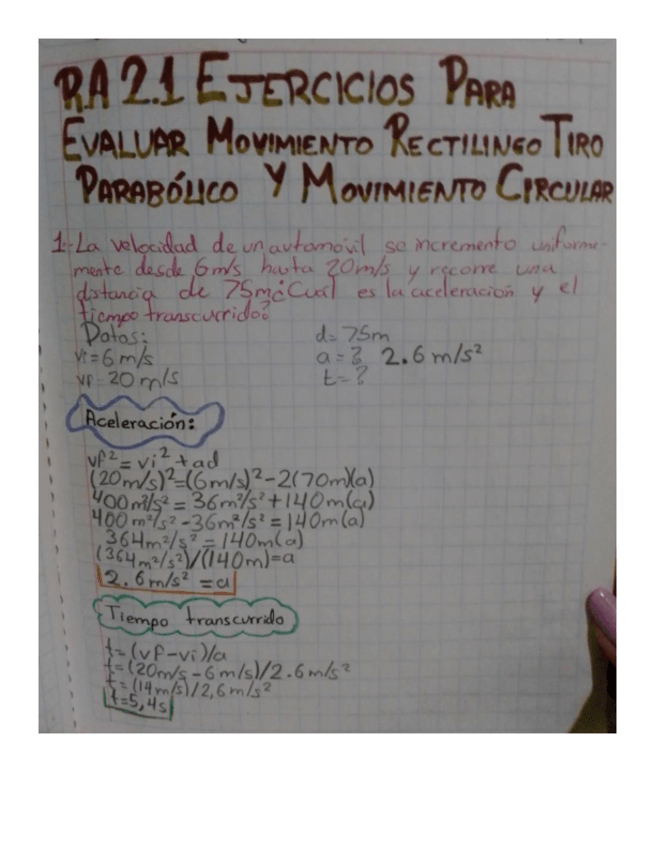 R.A 2.1 EJERCICIOS PARA
EVALUAR MOVIMIENTO RECTILINEO TIRO
PARABÓLICO Y MOVIMIENTO CIRCULAR
1.-La velocidad de un automóvil se incremento uniforme-
mente desde 6m/s hasta 20m/s y recorre una
distancia de 75m¿Cual es la aceleración y el
tiempo transcurrido?
Datos: d=75m
vi=6m/s a=? 2.6m/s²
vf=20m/s t=?
Aceleración:
vf²=vi²+ad
(20m/s)²=(6m/s)²-2(70m)(a)
400m²/s²=36m²/s²+140m(a)
400m²/s²-36m²/s²=140m(a)
364m²/s²=140m(a)
(364m²/s²)/(140m)=a
2.6m/s²=a
Tiempo transcurrido
t=(vf-vi)/a
t=(20m/s-6m/s)/2.6m/s²
t=(14m/s)/2,6m/s²
t=5,4s